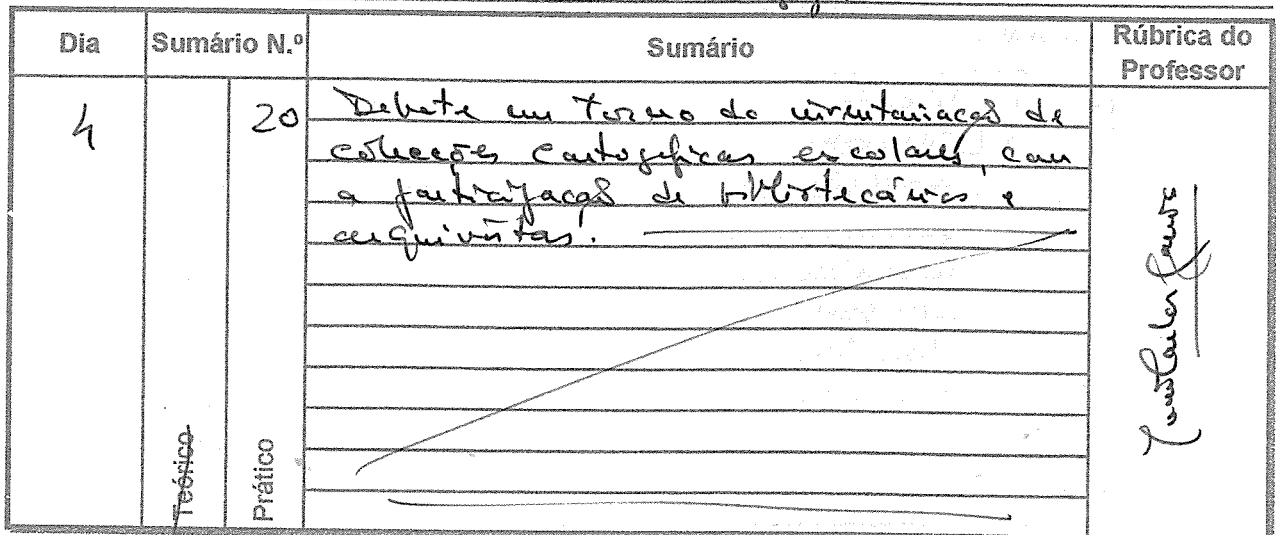 Dia Sumário N.º Sumário Rúbrica do Professor
4 20 Debate em torno da inventariação de
coleções cartográficas escolares, com
a participação de bibliotecários e
arquivistas.
Teórico Prático